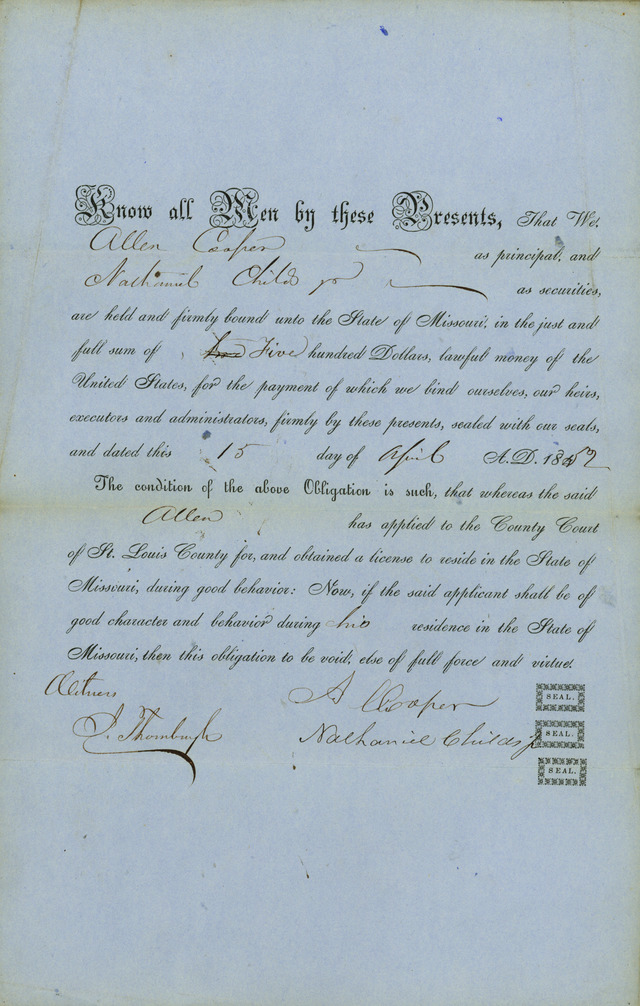 Know all Men by these Presents, That We,
Allen Cooper as principal, and
Nathaniel Childs jr as securities,
are held and firmly bound unto the State of Missouri, in the just and
full sum of Five hundred Dollars, lawful money of the
United States, for the payment of which we bind ourselves, our heirs,
executors and administrators, firmly by these presents, sealed with our seals,
and dated this 15 day of April A.D. 1852
The condition of the above Obligation is such, that whereas the said
Allen has applied to the County Court
of St. Louis County for, and obtained a license to reside in the State of
Missouri, during good behavior: Now, if the said applicant shall be of
good character and behavior during his residence in the State of
Missouri, then this obligation to be void, else of full force and virtue.
Witness
A Cooper SEAL.
J. Thornburgh
Nathaniel Childs jr SEAL.
SEAL.